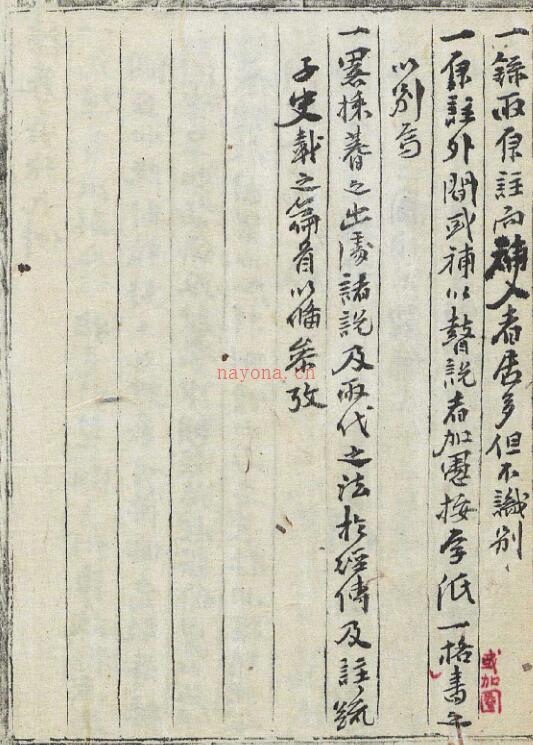 一錄取原註而補入者居多但不識別
一原註外間或補以瞽說者加愚按字低一格書之
或加圈
以別焉
一畧採蓍之出處諸說及兩代之法於經傳及註疏
子史載之篇首以備參攷
nayona.cn